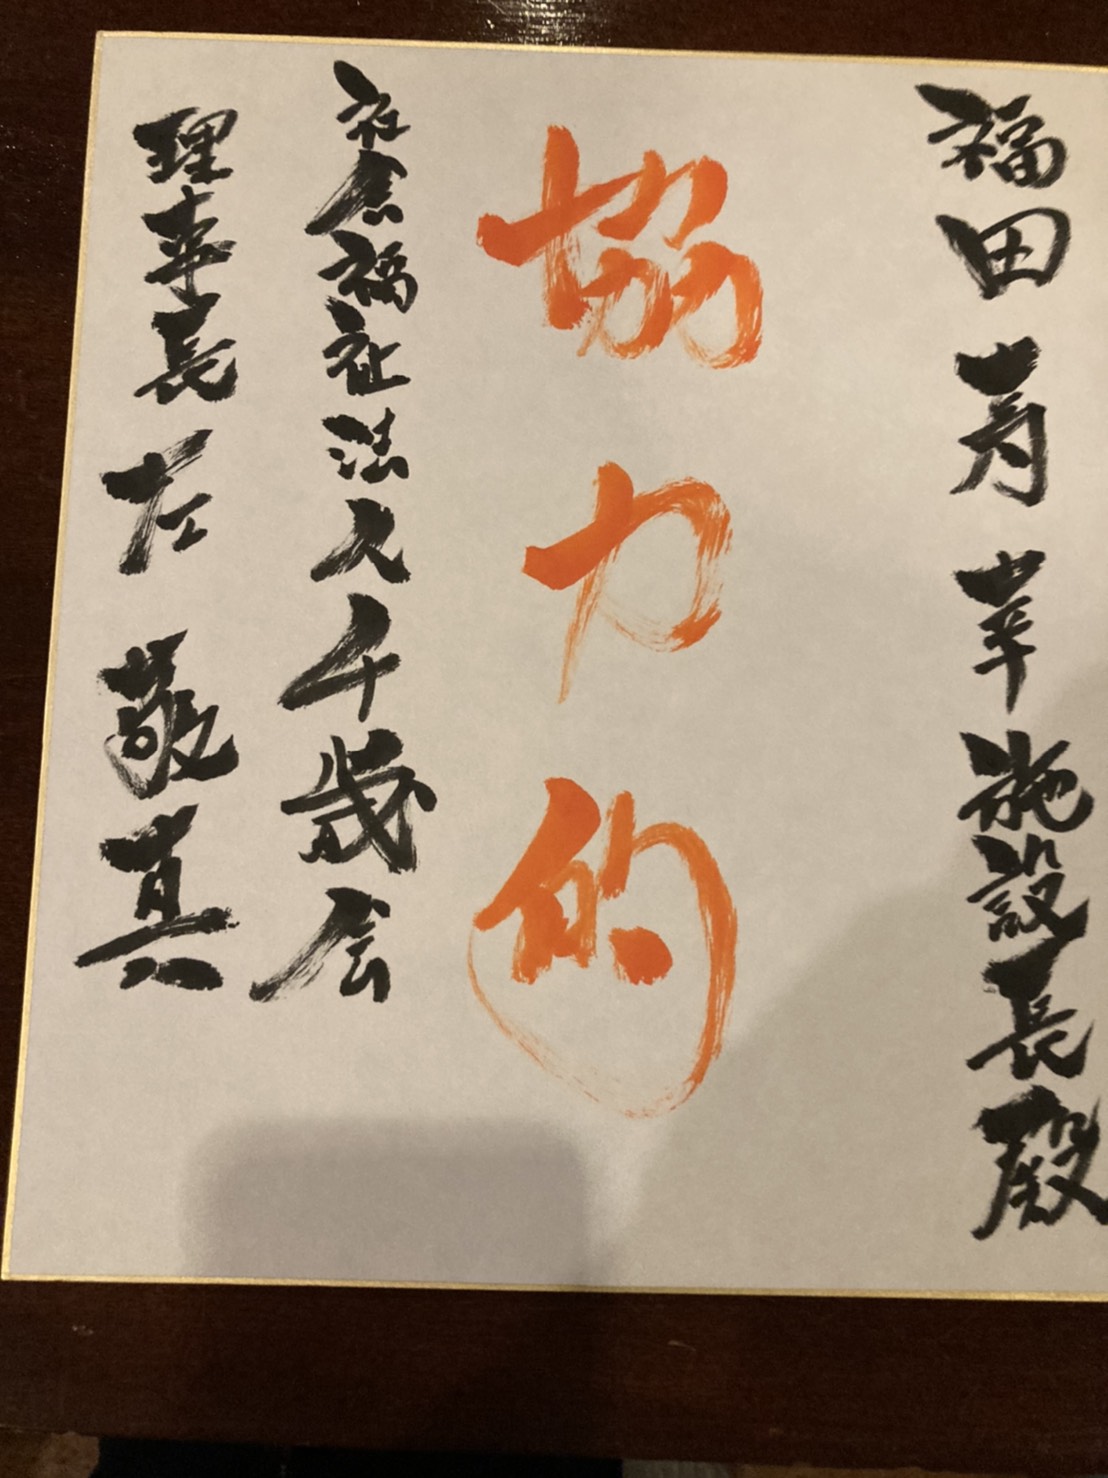 福田寿幸施設長殿
協力的
社会福祉法人千歳会
理事長 左 敬真